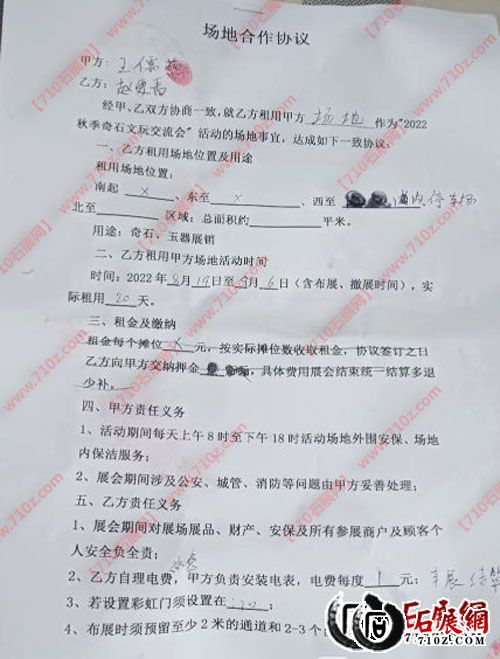 场地合作协议
甲方：王儒
乙方：赵
经甲、乙双方协商一致，就乙方租用甲方 场地 作为"2022
秋季奇石文玩交流会"活动的场地事宜，达成如下一致协议：
一、乙方租用场地位置及用途
租用场地位置：
南起 x 、东至 x 、西至 停车场
北至 区域：总面积约 平米。
用途：奇石、玉器展销
二、乙方租用甲方场地活动时间
时间：2022年8月19日至9月6日（含布展、撤展时间），实
际租用 20 天。
三、租金及缴纳
租金每个摊位 x 元，按实际摊位数收取租金，协议签订之日
乙方向甲方交纳押金 ，具体费用展会结束统一结算多退
少补。
四、甲方责任义务
1、活动期间每天上午8时至下午18时活动场地外围安保、场地
内保洁服务；
2、展会期间涉及公安、城管、消防等问题由甲方妥善处理；
五、乙方责任义务
1、展会期间对展场展品、财产、安保及所有参展商户及顾客个
人安全负全责；
2、乙方自理电费，甲方负责安装电表，电费每度 1 元；
3、若设置彩虹门须设置在 ；
4、布展时须预留至少2米的通道和2-3个
石展網
710Z.COM
【710石展网】
www.710z.com